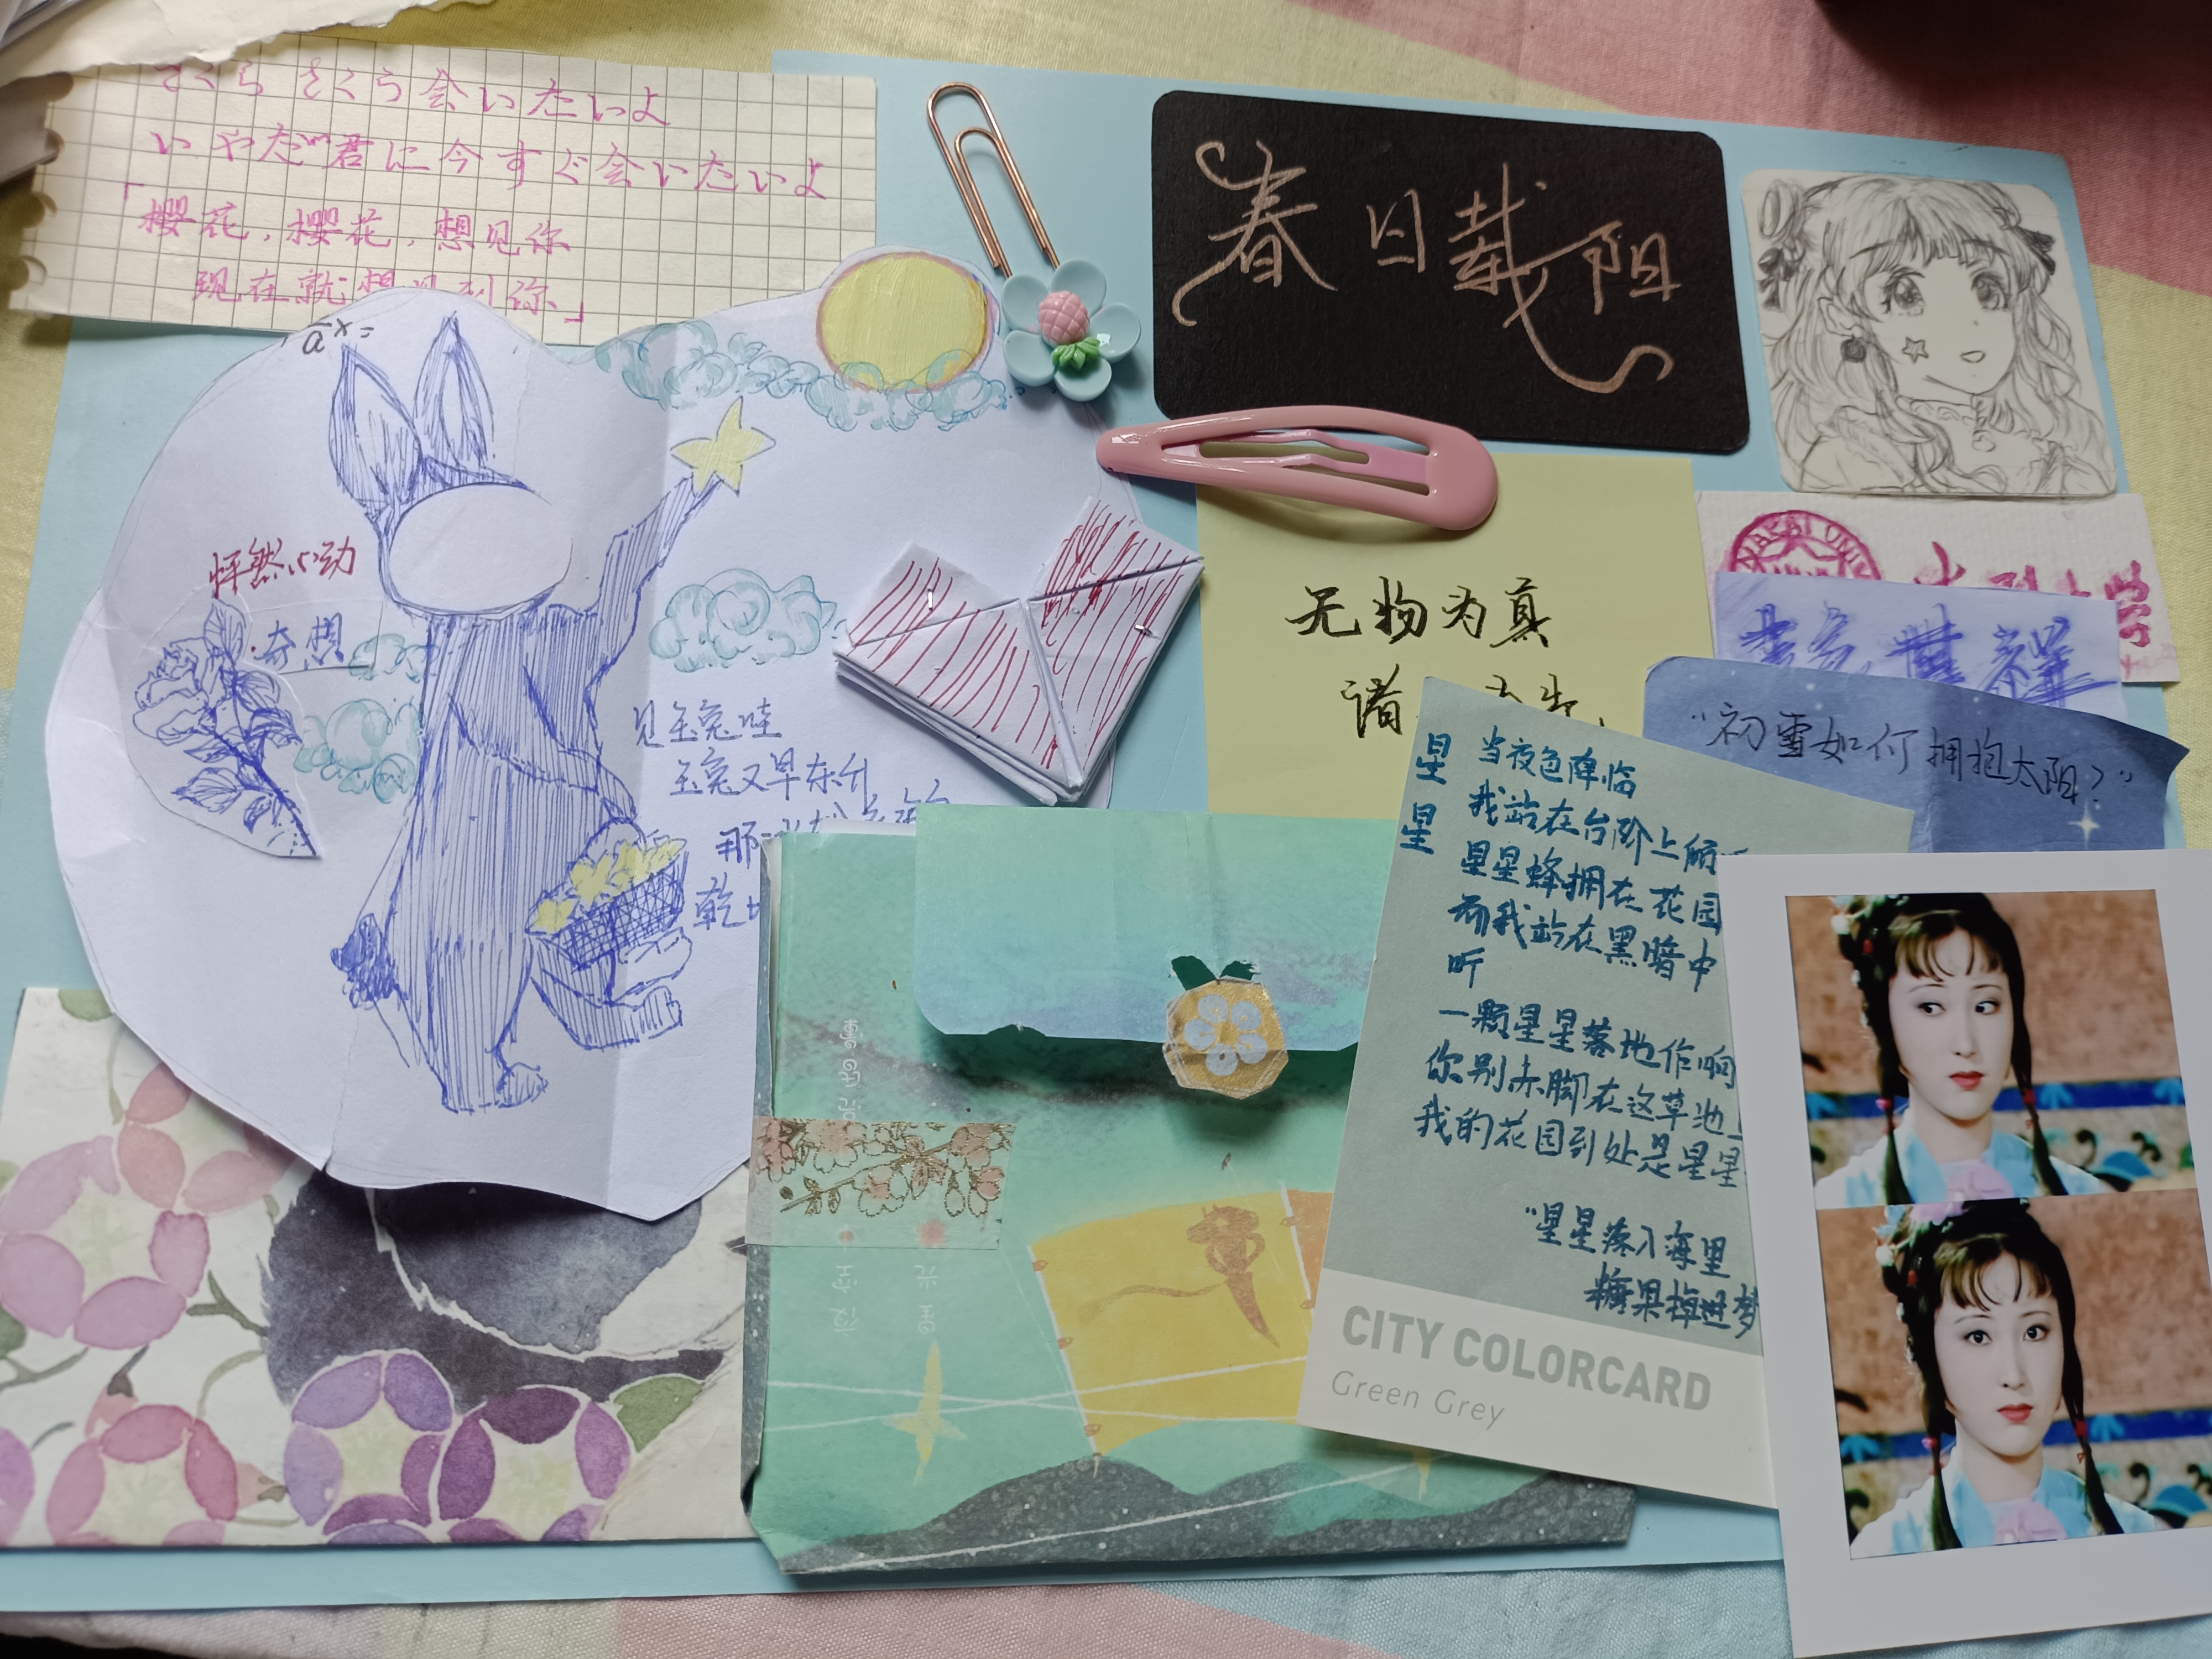 さくら さくら会いたいよ
いやだ 君に今すぐ会いたいよ
「樱花，樱花，想见你
现在就想见到你」
a^x=
春日载阳
怦然心动
奇想
见玉兔哇
玉兔又早东升
那
乾
无物为真
诸
"初雪如何拥抱太阳?"
星星
当夜色降临
我站在台阶上倾
星星蜂拥在花园
而我站在黑暗中
听
一颗星星落地作响
你别赤脚在这草地
我的花园到处是星星
"星星落入海里
糖果掉进梦
CITY COLORCARD
Green Grey